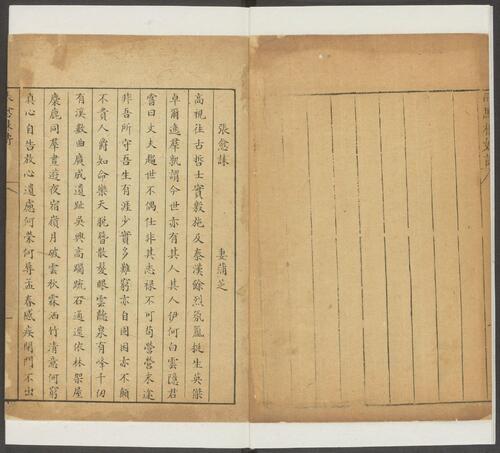 張愈誄
妻蒲芝
高視往古哲士實殷施及秦漢餘烈氛氳挺生英傑
卓爾逸羣孰謂今世亦有其人其人伊何白雲隱君
嘗曰丈夫趨世不偶仕非其志祿不可苟營營末途
非吾所守吾生有涯少實多難窮亦自固困亦不顛
不貴人爵知命樂天脫簪散髮眠雲聽泉有峰千仞
有溪數曲廣成遺趾吳興高躅疏石通逕依林架屋
麋鹿同羣晝遊夜宿嶺月破雲秋霖洒竹清意何窮
真心自告放心遺慮何榮何辱孟春感疾閉門不出